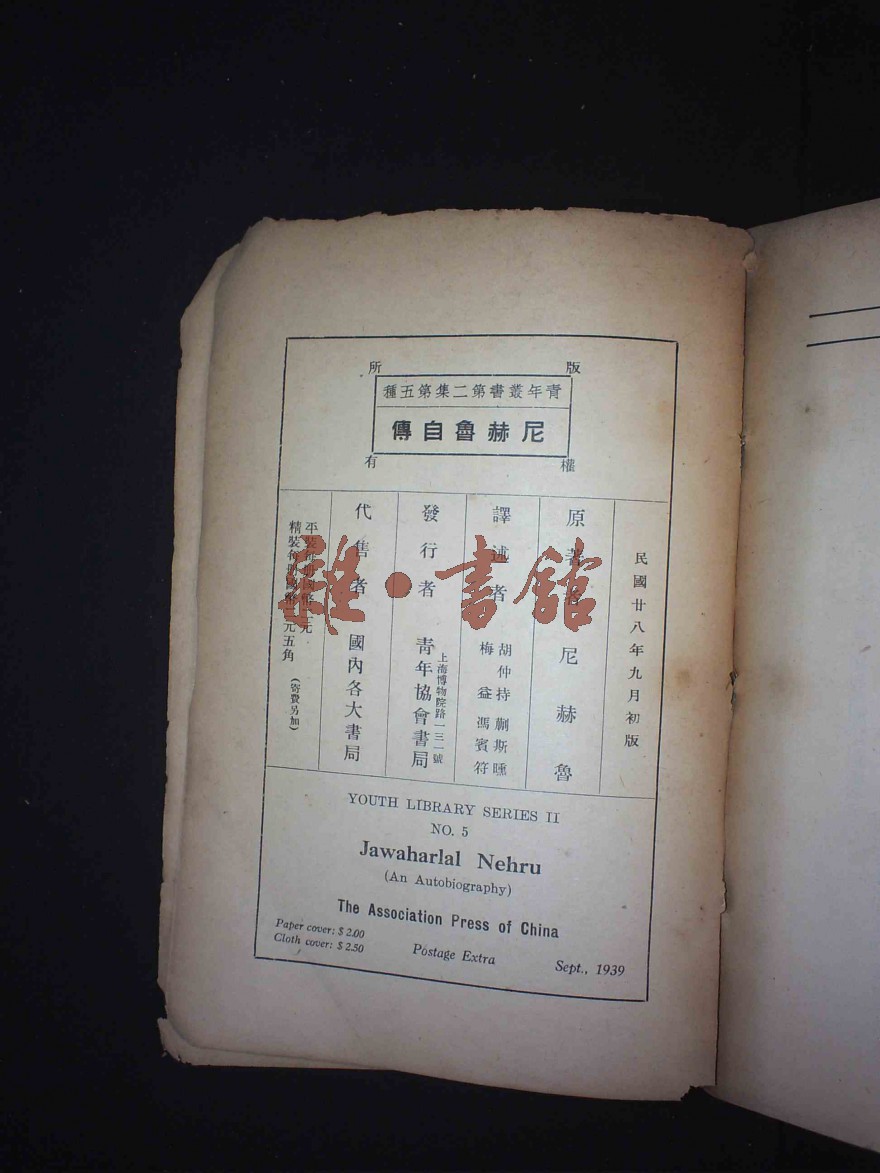 版權所有
青年叢書第二集第五種
尼赫魯自傳
民國廿八年九月初版
原著者 尼赫魯
譯述者 胡仲持 蒯斯曛 梅益 馮賓符
發行者 青年協會書局
上海博物院路一三一號
代售者 國內各大書局
平裝每冊國幣二元
精裝每冊國幣二元五角
(寄費另加)
YOUTH LIBRARY SERIES II
NO. 5
Jawaharlal Nehru
(An Autobiography)
The Association Press of China
Paper cover: $ 2.00
Cloth cover: $ 2.50
Postage Extra
Sept., 1939
雜·書館